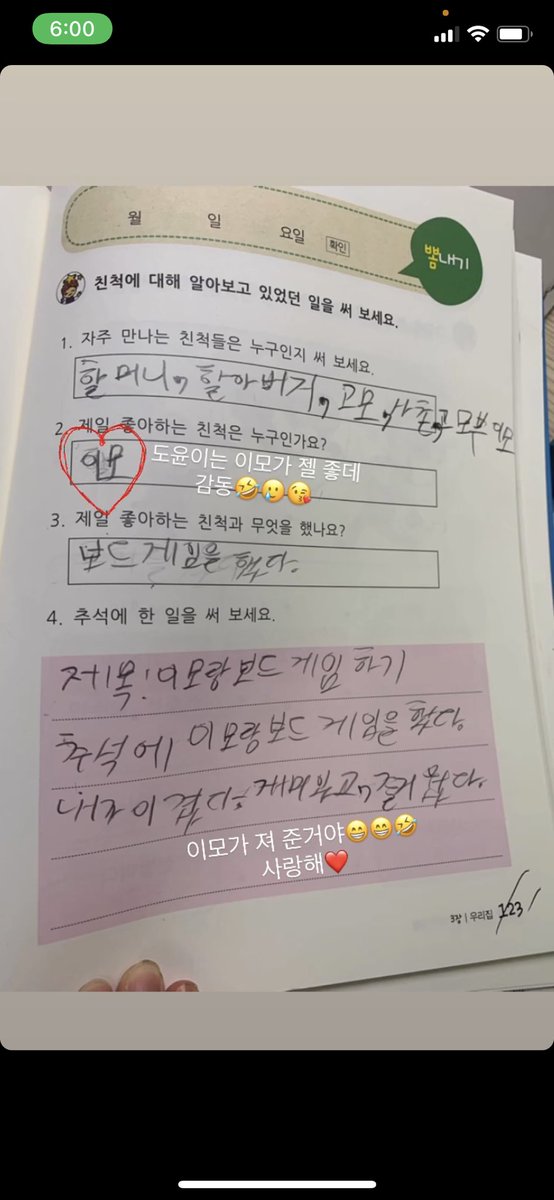 6:00
월 일 요일 확인
뽐내기
친척에 대해 알아보고 있었던 일을 써 보세요.
1. 자주 만나는 친척들은 누구인지 써 보세요.
할머니, 할아버지, 고모, 사촌, 고모부 이모
2. 제일 좋아하는 친척은 누구인가요?
이모
도윤이는 이모가 젤 좋데
감동🤣🥲😘
3. 제일 좋아하는 친척과 무엇을 했나요?
보드게임을 했다.
4. 추석에 한 일을 써 보세요.
제목: 이모랑보드 게임 하기
추석에 이모랑보드 게임을 했다.
내가 이겼다. 재미고, 즐거웠다.
이모가 져 준거야😁😁🤣
사랑해❤️
3장 | 우리집 123